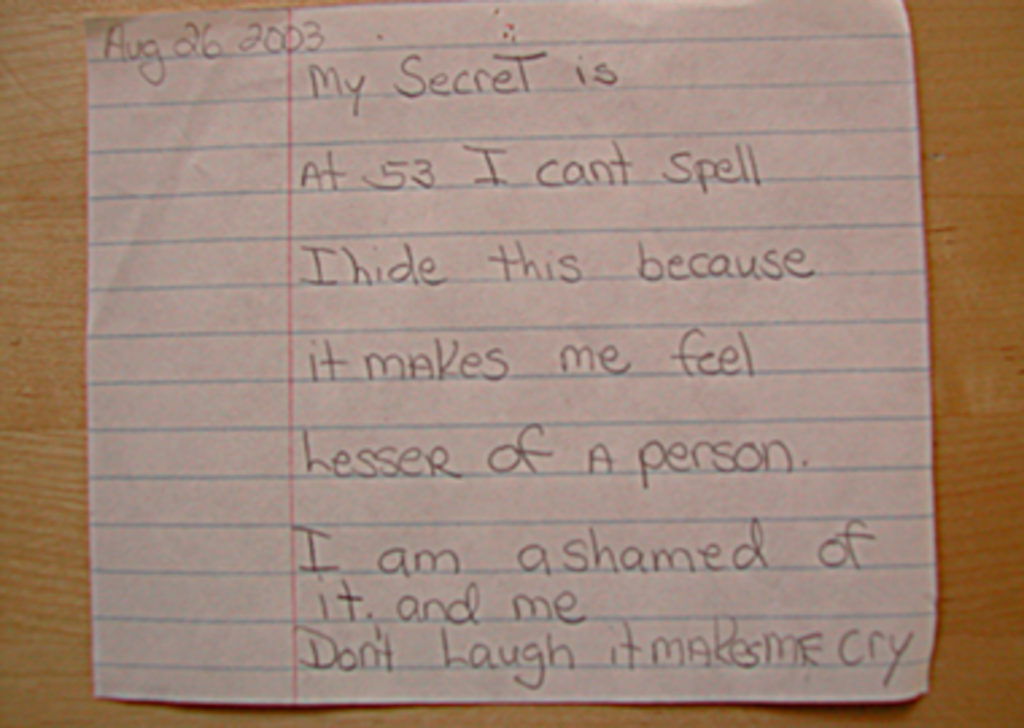 Aug 26 2003
My Secret is
At 53 I cant spell
I hide this because
it makes me feel
Lesser of A person.
I am ashamed of
it. and me
Don't Laugh it makes me cry